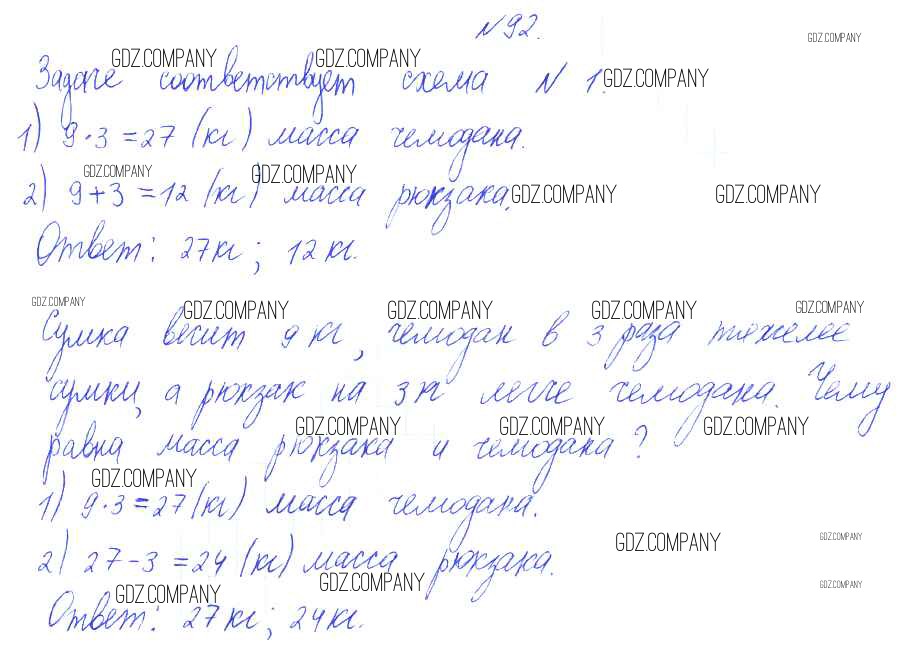 №92.
GDZ.COMPANY
GDZ.COMPANY GDZ.COMPANY
Задаче соответствует схема № 1. GDZ.COMPANY
1) 9·3=27 (кг) масса чемодана.
GDZ.COMPANY GDZ.COMPANY
2) 9+3=12 (кг) масса рюкзака. GDZ.COMPANY GDZ.COMPANY
Ответ: 27кг; 12кг.
GDZ.COMPANY GDZ.COMPANY GDZ.COMPANY GDZ.COMPANY GDZ.COMPANY
Сумка весит 9 кг, чемодан в 3 раза тяжелее
сумки, а рюкзак на 3 кг легче чемодана. Чему
GDZ.COMPANY GDZ.COMPANY GDZ.COMPANY
равна масса рюкзака и чемодана?
GDZ.COMPANY
1) 9·3=27(кг) масса чемодана.
GDZ.COMPANY GDZ.COMPANY
2) 27-3=24 (кг) масса рюкзака.
GDZ.COMPANY GDZ.COMPANY GDZ.COMPANY
Ответ: 27кг; 24кг.